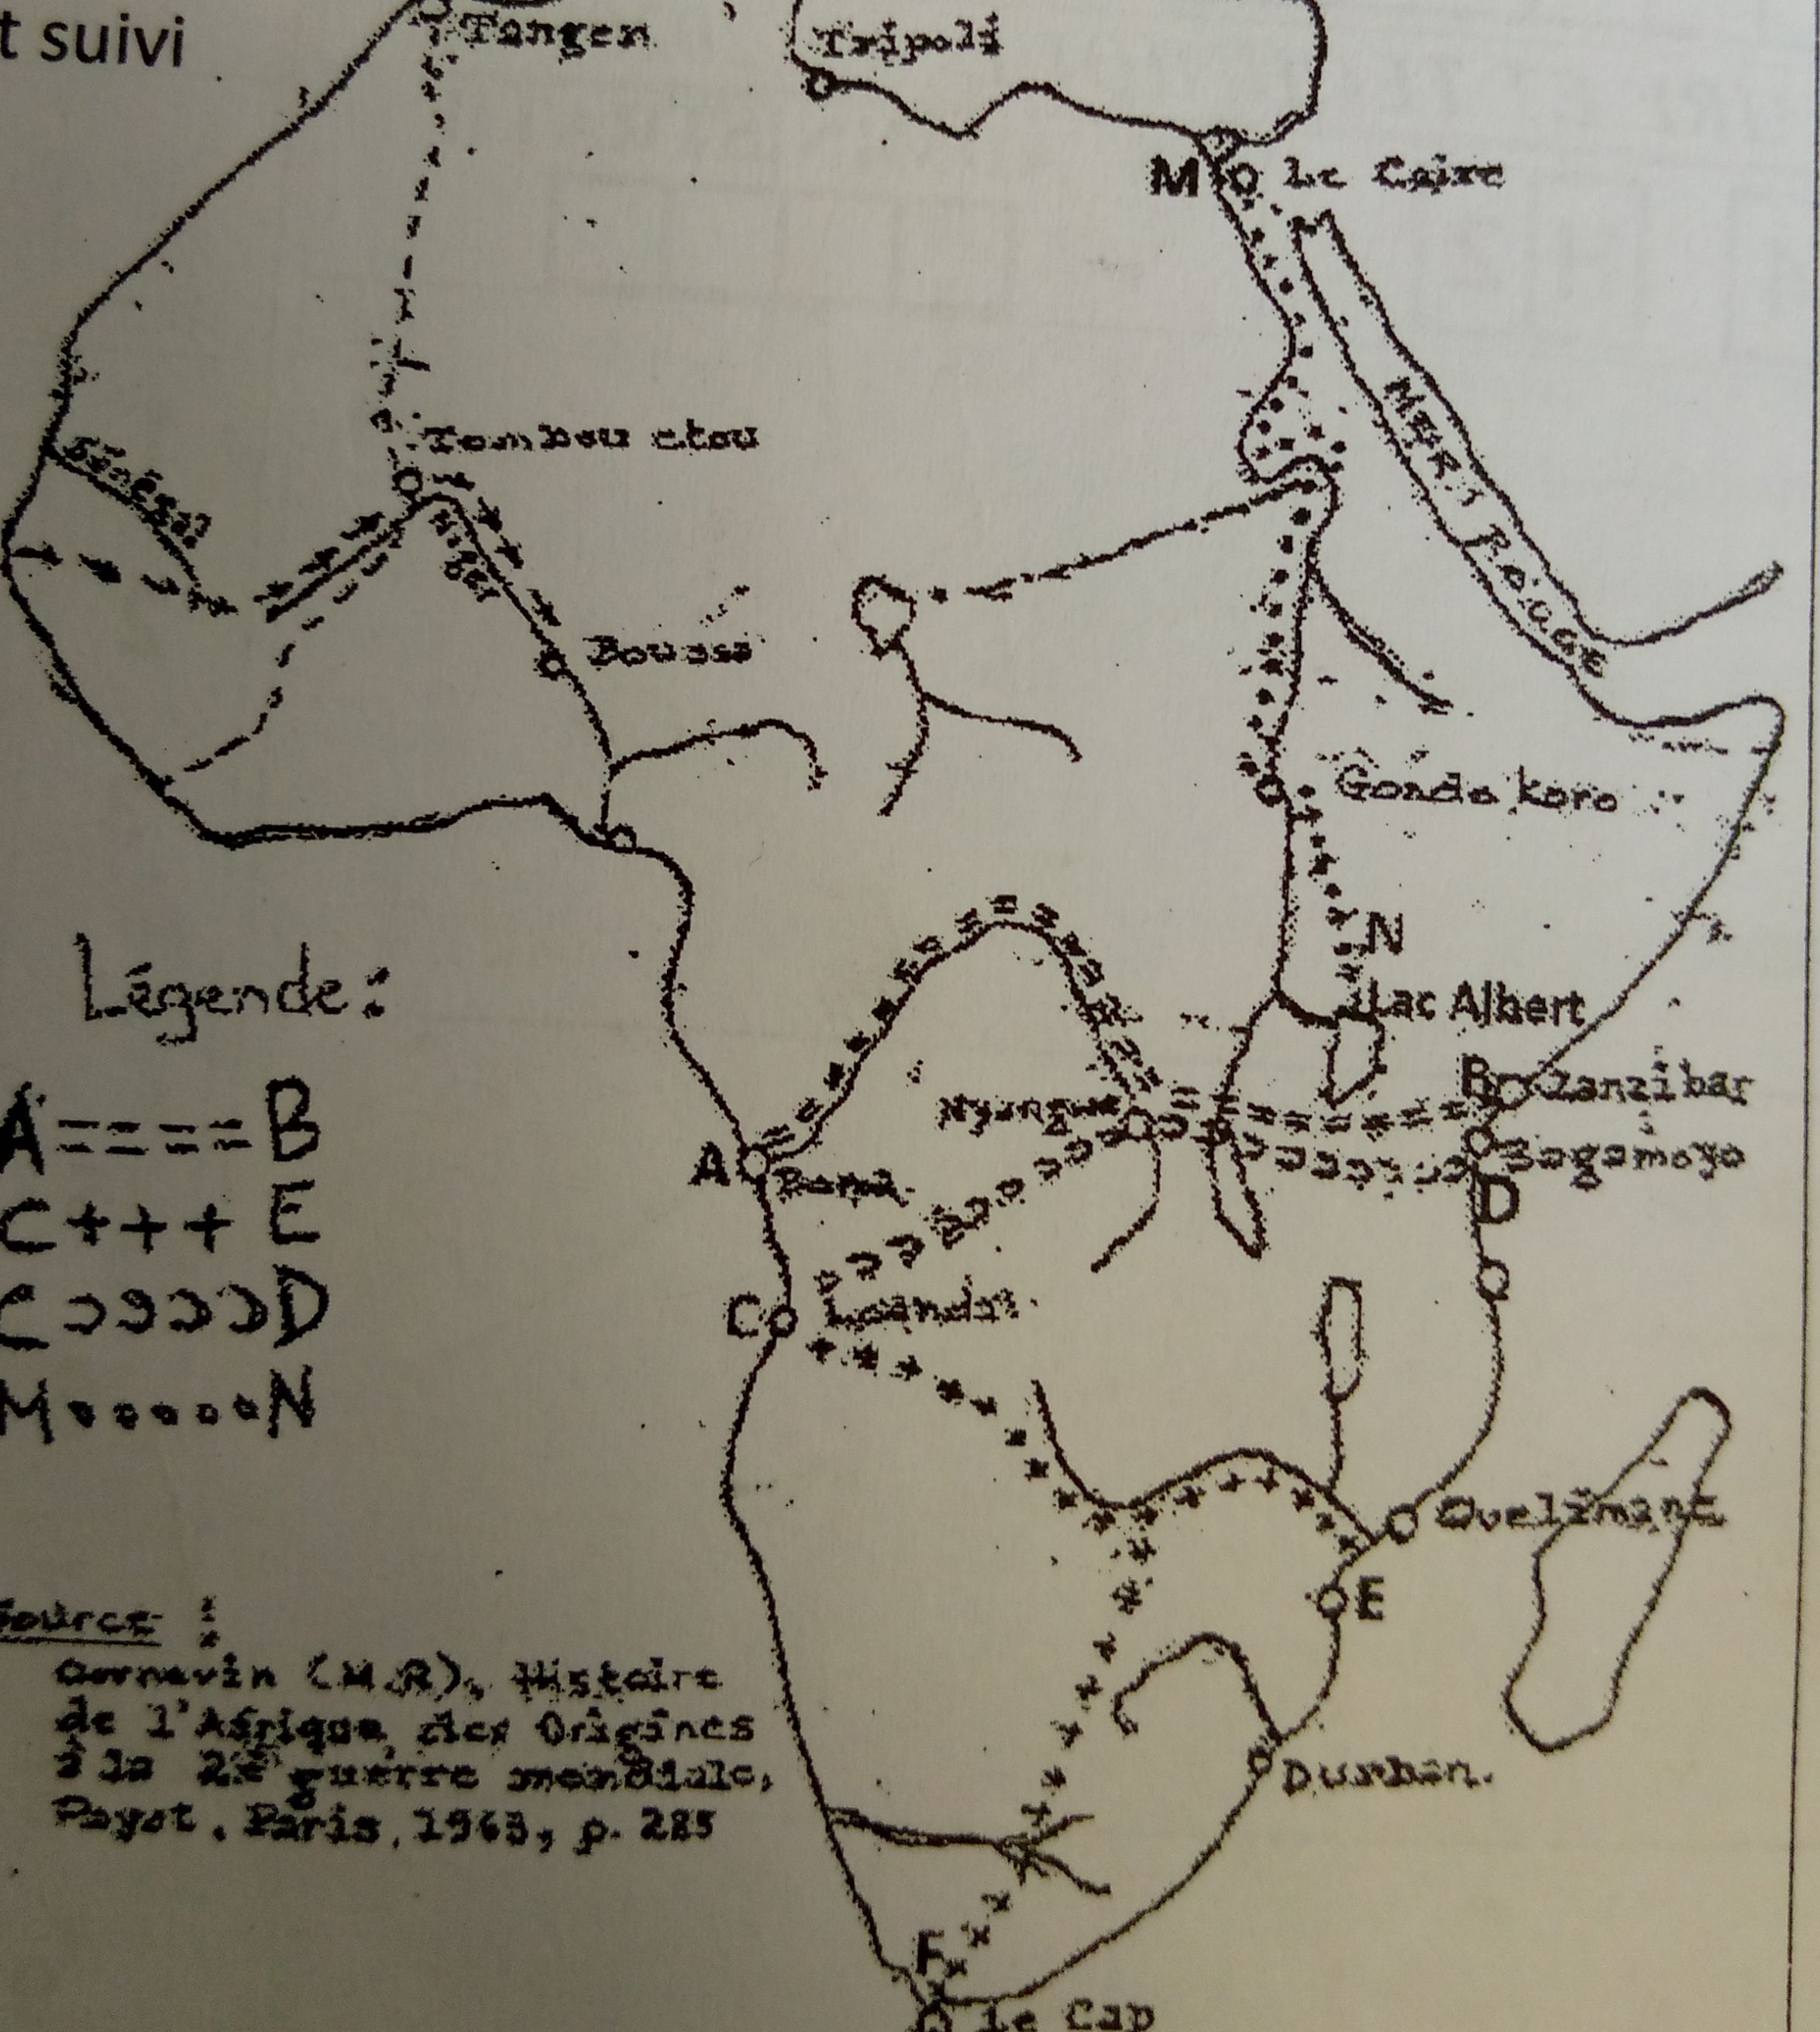 t suivi
Tangen
Tripoli
M
Le Caire
MER ROUGE
Tombouctou
Sénégal
Niger
Boussa
Gondokoro
N
Lac Albert
Légende :
A====B
C+++E
CↃↃↃↃD
M.....N
B
Zanzibar
Nyangwe
Bagamoyo
D
A
Boma
C
Loanda
Quelimane
E
Source :
Cornevin (M.R), Histoire
de l'Afrique des Origines
à la 2è guerre mondiale,
Payot, Paris, 1963, p. 285
Durban.
F
Le Cap